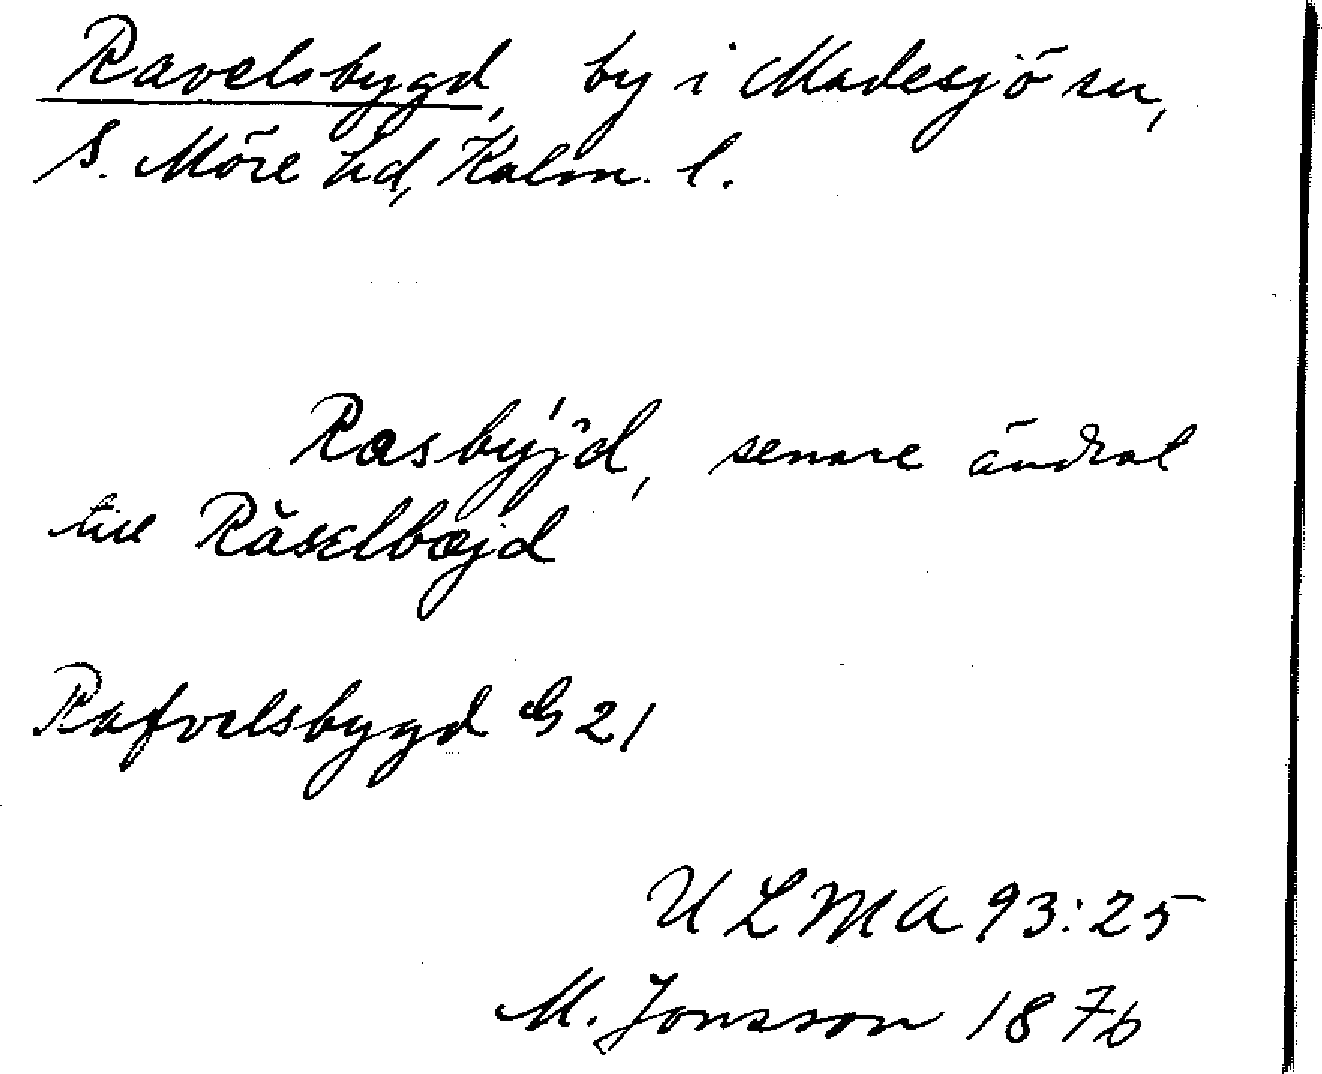 Ravelsbygd, by i Madesjö sn,
S. Möre hd, Kalm. l.
Rasbýjd, senare ändrat
till Råsɛlbæjd
Rafvelsbygd G 21
ULMA 93:25
M. Jonsson 1876